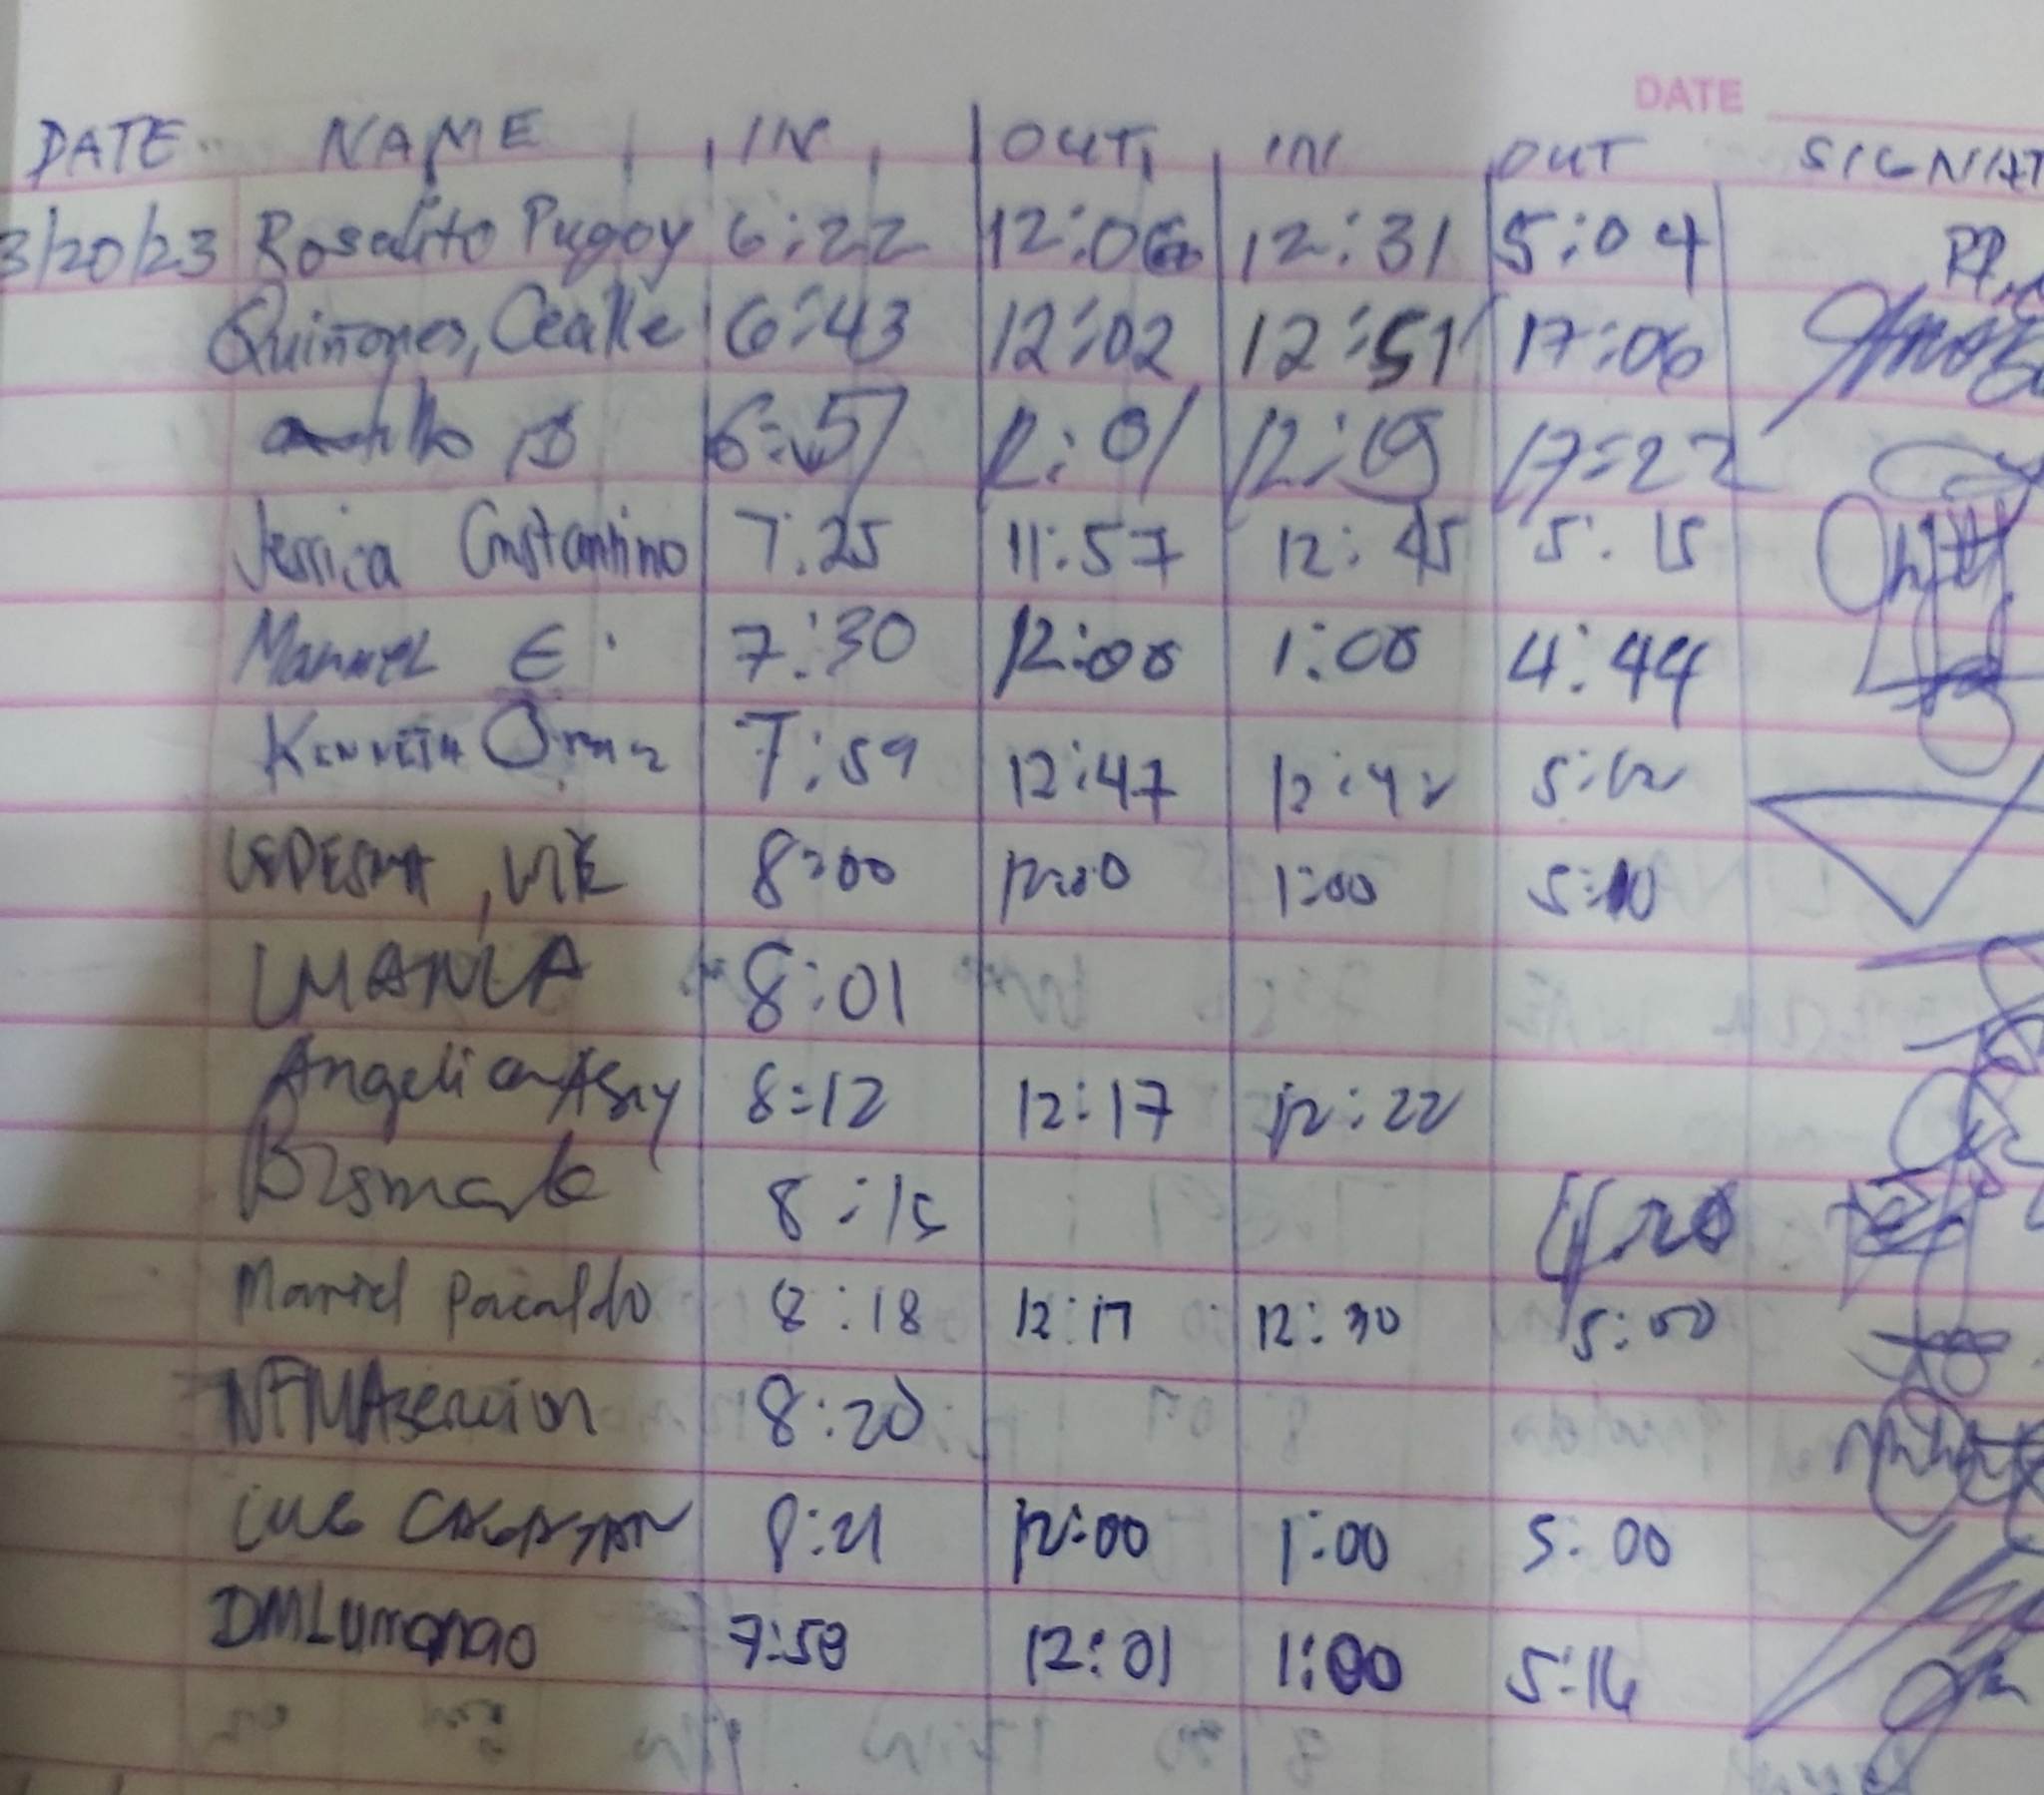 DATE
DATE NAME IN OUT IN OUT SIGNAT
3/20/23 Rosalito Pugoy 6:22 12:06 12:31 5:04 RP.
Quiñones, Cealle 6:43 12:02 12:51 17:06
6:57 12:01 12:19 17:22
Jessica Constantino 7:25 11:57 12:45 5:15
Manuel E. 7:30 12:00 1:00 4:44
Kenneth 7:59 12:47 12:42 5:12
LEDESMA, 8:00 12:00 1:00 5:10
8:01
Angelica 8:12 12:17 12:22
Bismark 8:15
Mariel Pacaldo 8:18 12:17 12:30 5:00
NFMAsencion 8:20
8:21 12:00 1:00 5:00
DMLumanao 7:58 12:01 1:00 5:16